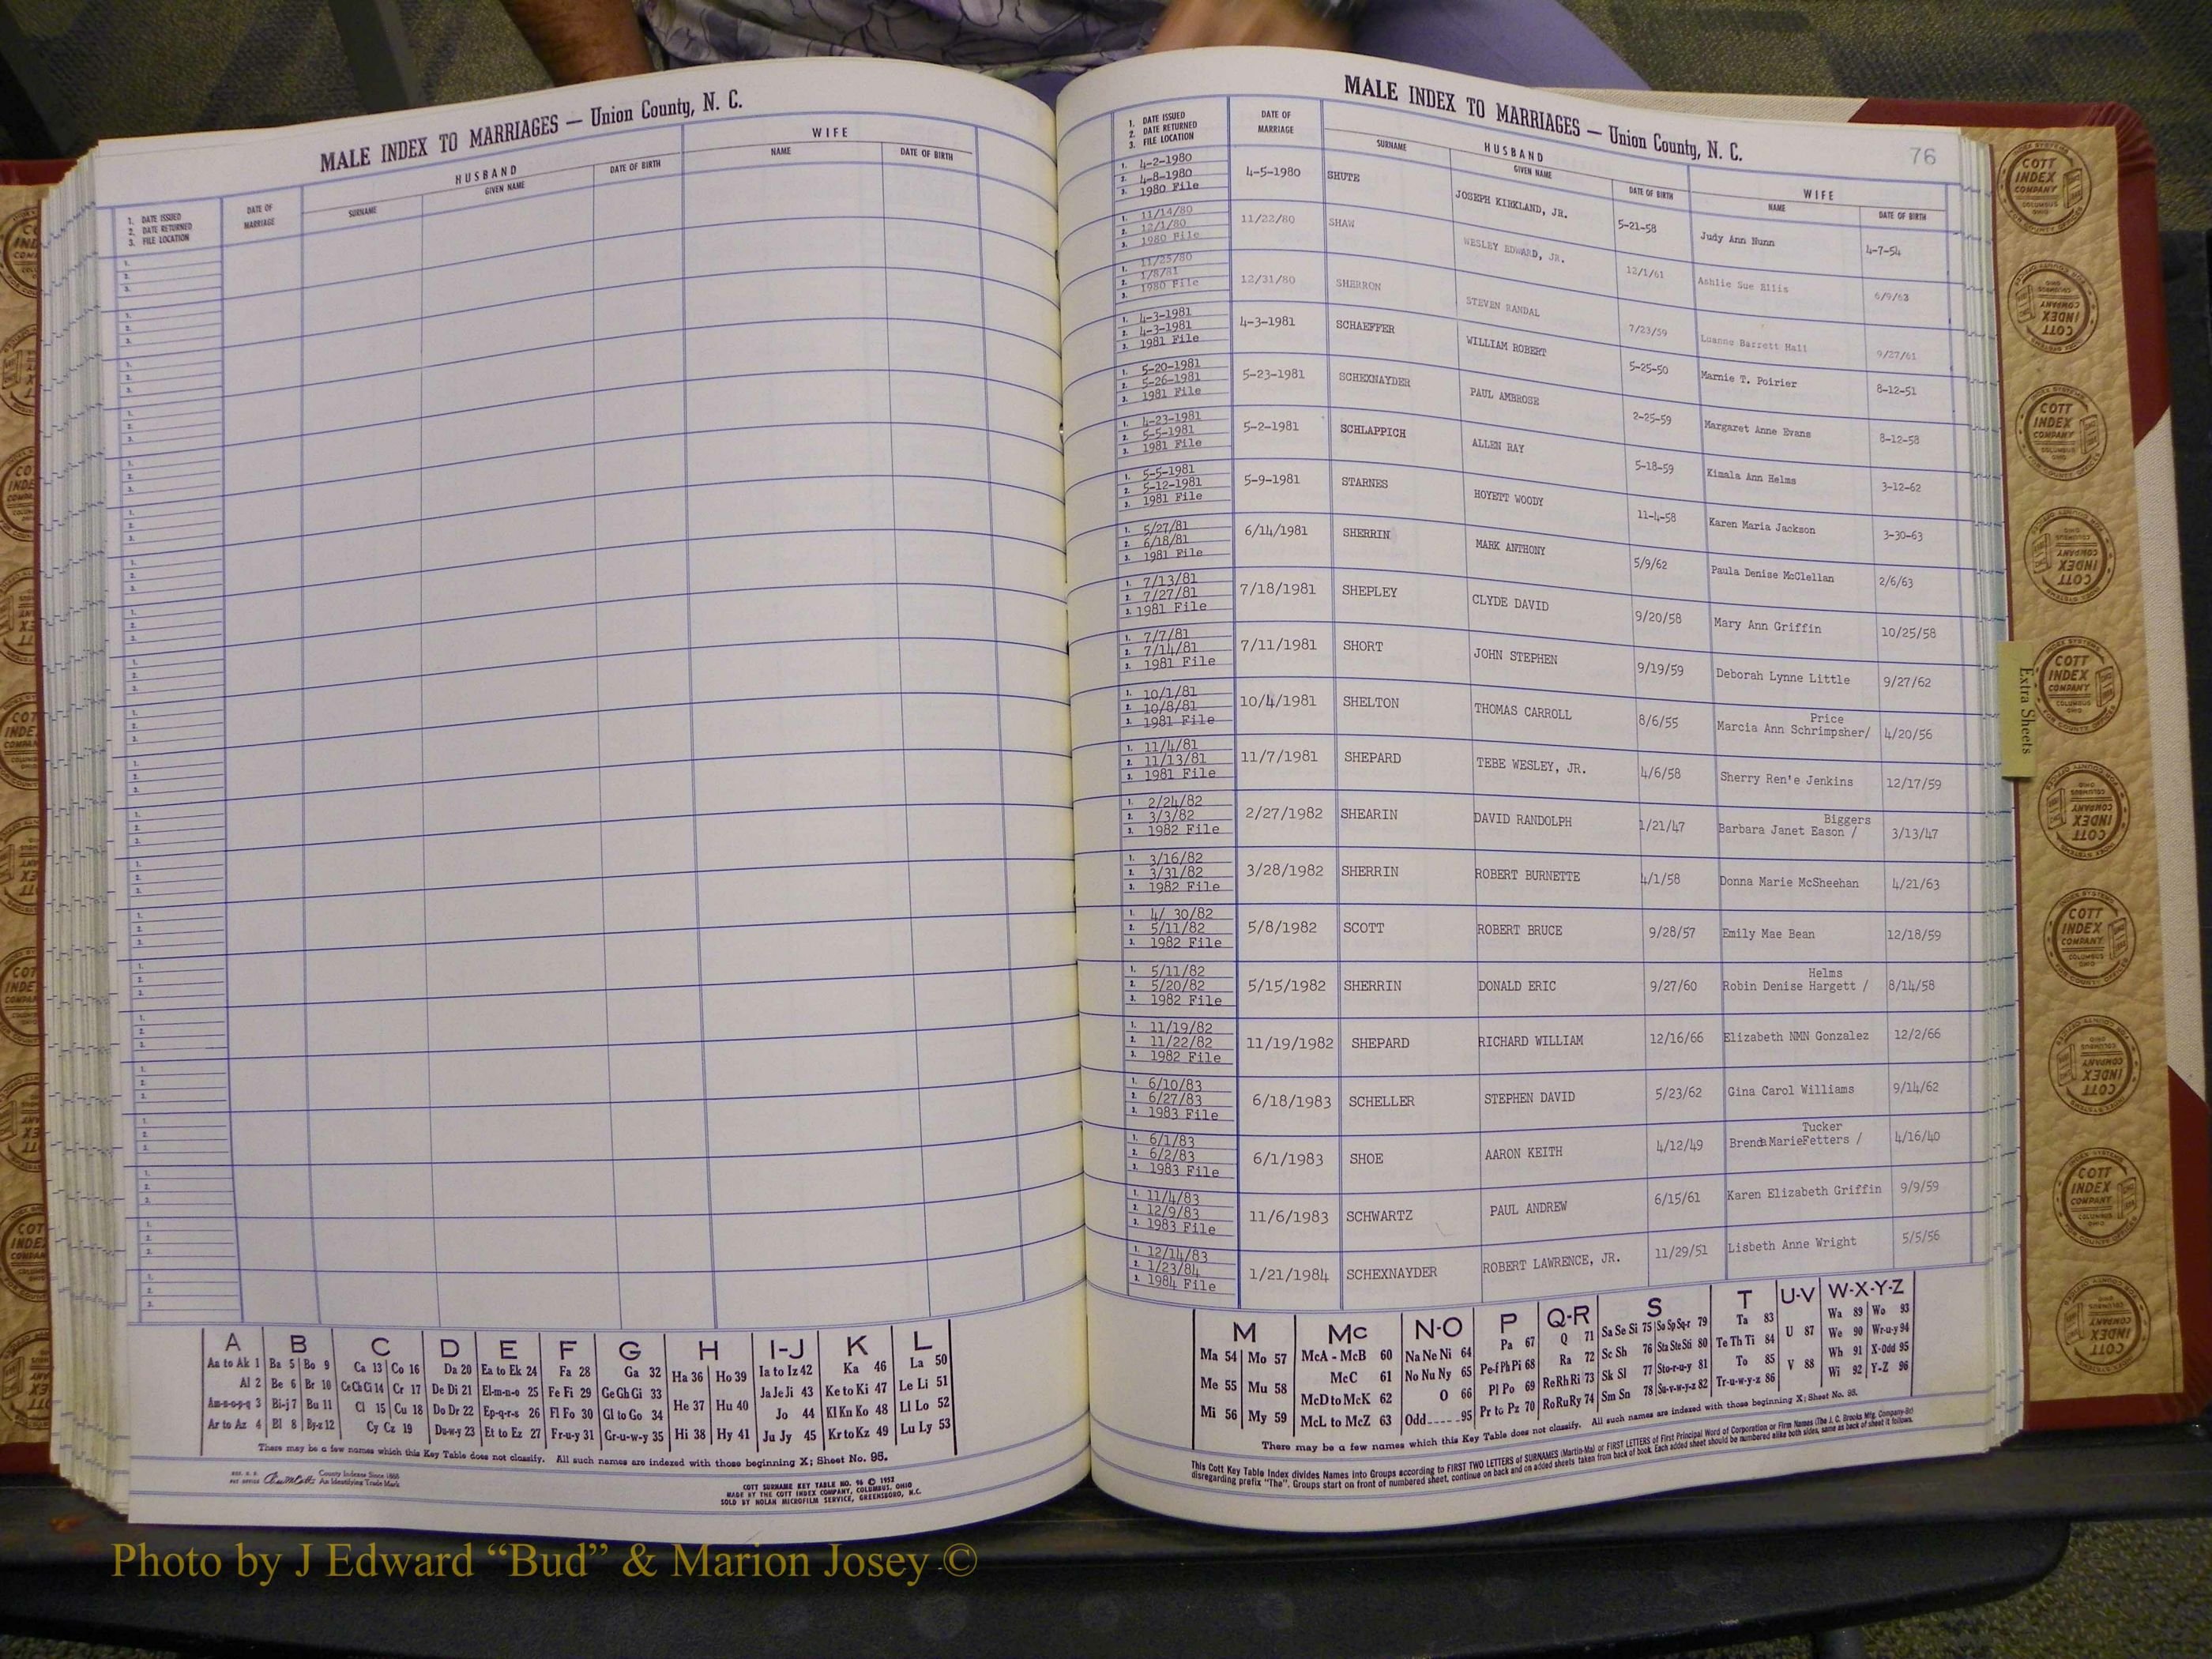 MALE INDEX TO MARRIAGES — Union County, N. C.
1. DATE ISSUED
2. DATE RETURNED
3. FILE LOCATION
DATE OF MARRIAGE
HUSBAND
SURNAME GIVEN NAME DATE OF BIRTH
WIFE
NAME DATE OF BIRTH
A B C D E F G H I-J K L
Aa to Ak 1 Ba 5 Bo 9 Ca 13 Co 16 Da 20 Ea to Ek 24 Fa 28 Ga 32 Ha 36 Ho 39 Ia to Iz 42 Ka 46 La 50
Al 2 Be 6 Br 10 Ce Ch Ci 14 Cr 17 De Di 21 El-m-n-o 25 Fe Fi 29 Ge Gh Gi 33 He 37 Hu 40 Ja Je Ji 43 Ke to Ki 47 Le Li 51
Am-n-o-p-q 3 Bi-j 7 Bu 11 Cl 15 Cu 18 Do Dr 22 Ep-q-r-s 26 Fl Fo 30 Gl to Go 34 Hi 38 Hy 41 Jo 44 Kl Kn Ko 48 Ll Lo 52
Ar to Az 4 Bl 8 By-z 12 Cy Cz 19 Du-w-y 23 Et to Ez 27 Fr-u-y 31 Gr-u-w-y 35 Ju Jy 45 Kr to Kz 49 Lu Ly 53
There may be a few names which this Key Table does not classify. All such names are indexed with those beginning X; Sheet No. 95.
County Indexes Since 1888
An Identifying Trade Mark
COTT SURNAME KEY TABLE NO. 96 © 1952
MADE BY THE COTT INDEX COMPANY, COLUMBUS, OHIO
SOLD BY NOLAN MICROFILM SERVICE, GREENSBORO, N.C.
MALE INDEX TO MARRIAGES — Union County, N. C.
76
1. DATE ISSUED
2. DATE RETURNED
3. FILE LOCATION
DATE OF MARRIAGE
HUSBAND
SURNAME GIVEN NAME DATE OF BIRTH
WIFE
NAME DATE OF BIRTH
1. 4-2-1980
2. 4-8-1980 4-5-1980 SHUTE JOSEPH KIRKLAND, JR. 5-21-58 Judy Ann Nunn 4-7-54
3. 1980 File
1. 11/14/80
2. 12/1/80 11/22/80 SHAW WESLEY EDWARD, JR. 12/1/61 Ashlie Sue Ellis 6/9/63
3. 1980 File
1. 11/25/80
2. 1/8/81 12/31/80 SHERRON STEVEN RANDAL 7/23/59 Luanne Barrett Hall 9/27/61
3. 1980 File
1. 4-3-1981
2. 4-3-1981 4-3-1981 SCHAEFFER WILLIAM ROBERT 5-25-50 Marnie T. Poirier 8-12-51
3. 1981 File
1. 5-20-1981
2. 5-26-1981 5-23-1981 SCHEXNAYDER PAUL AMBROSE 2-25-59 Margaret Anne Evans 8-12-58
3. 1981 File
1. 4-23-1981
2. 5-5-1981 5-2-1981 SCHLAPPICH ALLEN RAY 5-18-59 Kimala Ann Helms 3-12-62
3. 1981 File
1. 5-5-1981
2. 5-12-1981 5-9-1981 STARNES HOYETT WOODY 11-4-58 Karen Maria Jackson 3-30-63
3. 1981 File
1. 5/27/81
2. 6/18/81 6/14/1981 SHERRIN MARK ANTHONY 5/9/62 Paula Denise McClellan 2/6/63
3. 1981 File
1. 7/13/81
2. 7/27/81 7/18/1981 SHEPLEY CLYDE DAVID 9/20/58 Mary Ann Griffin 10/25/58
3. 1981 File
1. 7/7/81
2. 7/14/81 7/11/1981 SHORT JOHN STEPHEN 9/19/59 Deborah Lynne Little 9/27/62
3. 1981 File
1. 10/1/81 Price
2. 10/8/81 10/4/1981 SHELTON THOMAS CARROLL 8/6/55 Marcia Ann Schrimpsher/ 4/20/56
3. 1981 File
1. 11/4/81
2. 11/13/81 11/7/1981 SHEPARD TEBE WESLEY, JR. 4/6/58 Sherry Ren'e Jenkins 12/17/59
3. 1981 File
1. 2/24/82 Biggers
2. 3/3/82 2/27/1982 SHEARIN DAVID RANDOLPH 1/21/47 Barbara Janet Eason / 3/13/47
3. 1982 File
1. 3/16/82
2. 3/31/82 3/28/1982 SHERRIN ROBERT BURNETTE 4/1/58 Donna Marie McSheehan 4/21/63
3. 1982 File
1. 4/ 30/82
2. 5/11/82 5/8/1982 SCOTT ROBERT BRUCE 9/28/57 Emily Mae Bean 12/18/59
3. 1982 File
1. 5/11/82 Helms
2. 5/20/82 5/15/1982 SHERRIN DONALD ERIC 9/27/60 Robin Denise Hargett / 8/14/58
3. 1982 File
1. 11/19/82
2. 11/22/82 11/19/1982 SHEPARD RICHARD WILLIAM 12/16/66 Elizabeth NMN Gonzalez 12/2/66
3. 1982 File
1. 6/10/83
2. 6/27/83 6/18/1983 SCHELLER STEPHEN DAVID 5/23/62 Gina Carol Williams 9/14/62
3. 1983 File
1. 6/1/83 Tucker
2. 6/2/83 6/1/1983 SHOE AARON KEITH 4/12/49 Brenda Marie Fetters / 4/16/40
3. 1983 File
1. 11/4/83
2. 12/9/83 11/6/1983 SCHWARTZ PAUL ANDREW 6/15/61 Karen Elizabeth Griffin 9/9/59
3. 1983 File
1. 12/14/83
2. 1/23/84 1/21/1984 SCHEXNAYDER ROBERT LAWRENCE, JR. 11/29/51 Lisbeth Anne Wright 5/5/56
3. 1984 File
M Mc N-O P Q-R S T U-V W-X-Y-Z
Ma 54 Mo 57 McA - McB 60 Na Ne Ni 64 Pa 67 Q 71 Sa Se Si 75 So Sp Sq-r 79 Ta 83 U 87 Wa 89 Wo 93
Me 55 Mu 58 McC 61 No Nu Ny 65 Pe-f Ph Pi 68 Ra 72 Sc Sh 76 Sta Ste Sti 80 Te Th Ti 84 V 88 We 90 Wr-u-y 94
Mi 56 My 59 McD to McK 62 O 66 Pl Po 69 Re Rh Ri 73 Sk Sl 77 Sto-r-u-y 81 To 85 Wh 91 X-Odd 95
McL to McZ 63 Odd 95 Pr to Pz 70 Ro Ru Ry 74 Sm Sn 78 Su-v-w-y-z 82 Tr-u-w-y-z 86 Wi 92 Y-Z 96
There may be a few names which this Key Table does not classify. All such names are indexed with those beginning X; Sheet No. 95.
This Cott Key Table Index divides Names into Groups according to FIRST TWO LETTERS of SURNAMES (Martin-Ma) or FIRST LETTERS of First Principal Word of Corporation or Firm Names (The J. C. Brooks Mfg. Company-Br)
disregarding prefix "The". Groups start on front of numbered sheet, continue on back and on added sheets taken from back of book. Each added sheet should be numbered alike both sides, same as back of sheet it follows.
Extra Sheets
COTT INDEX COMPANY COLUMBUS OHIO
Photo by J Edward “Bud” & Marion Josey ©